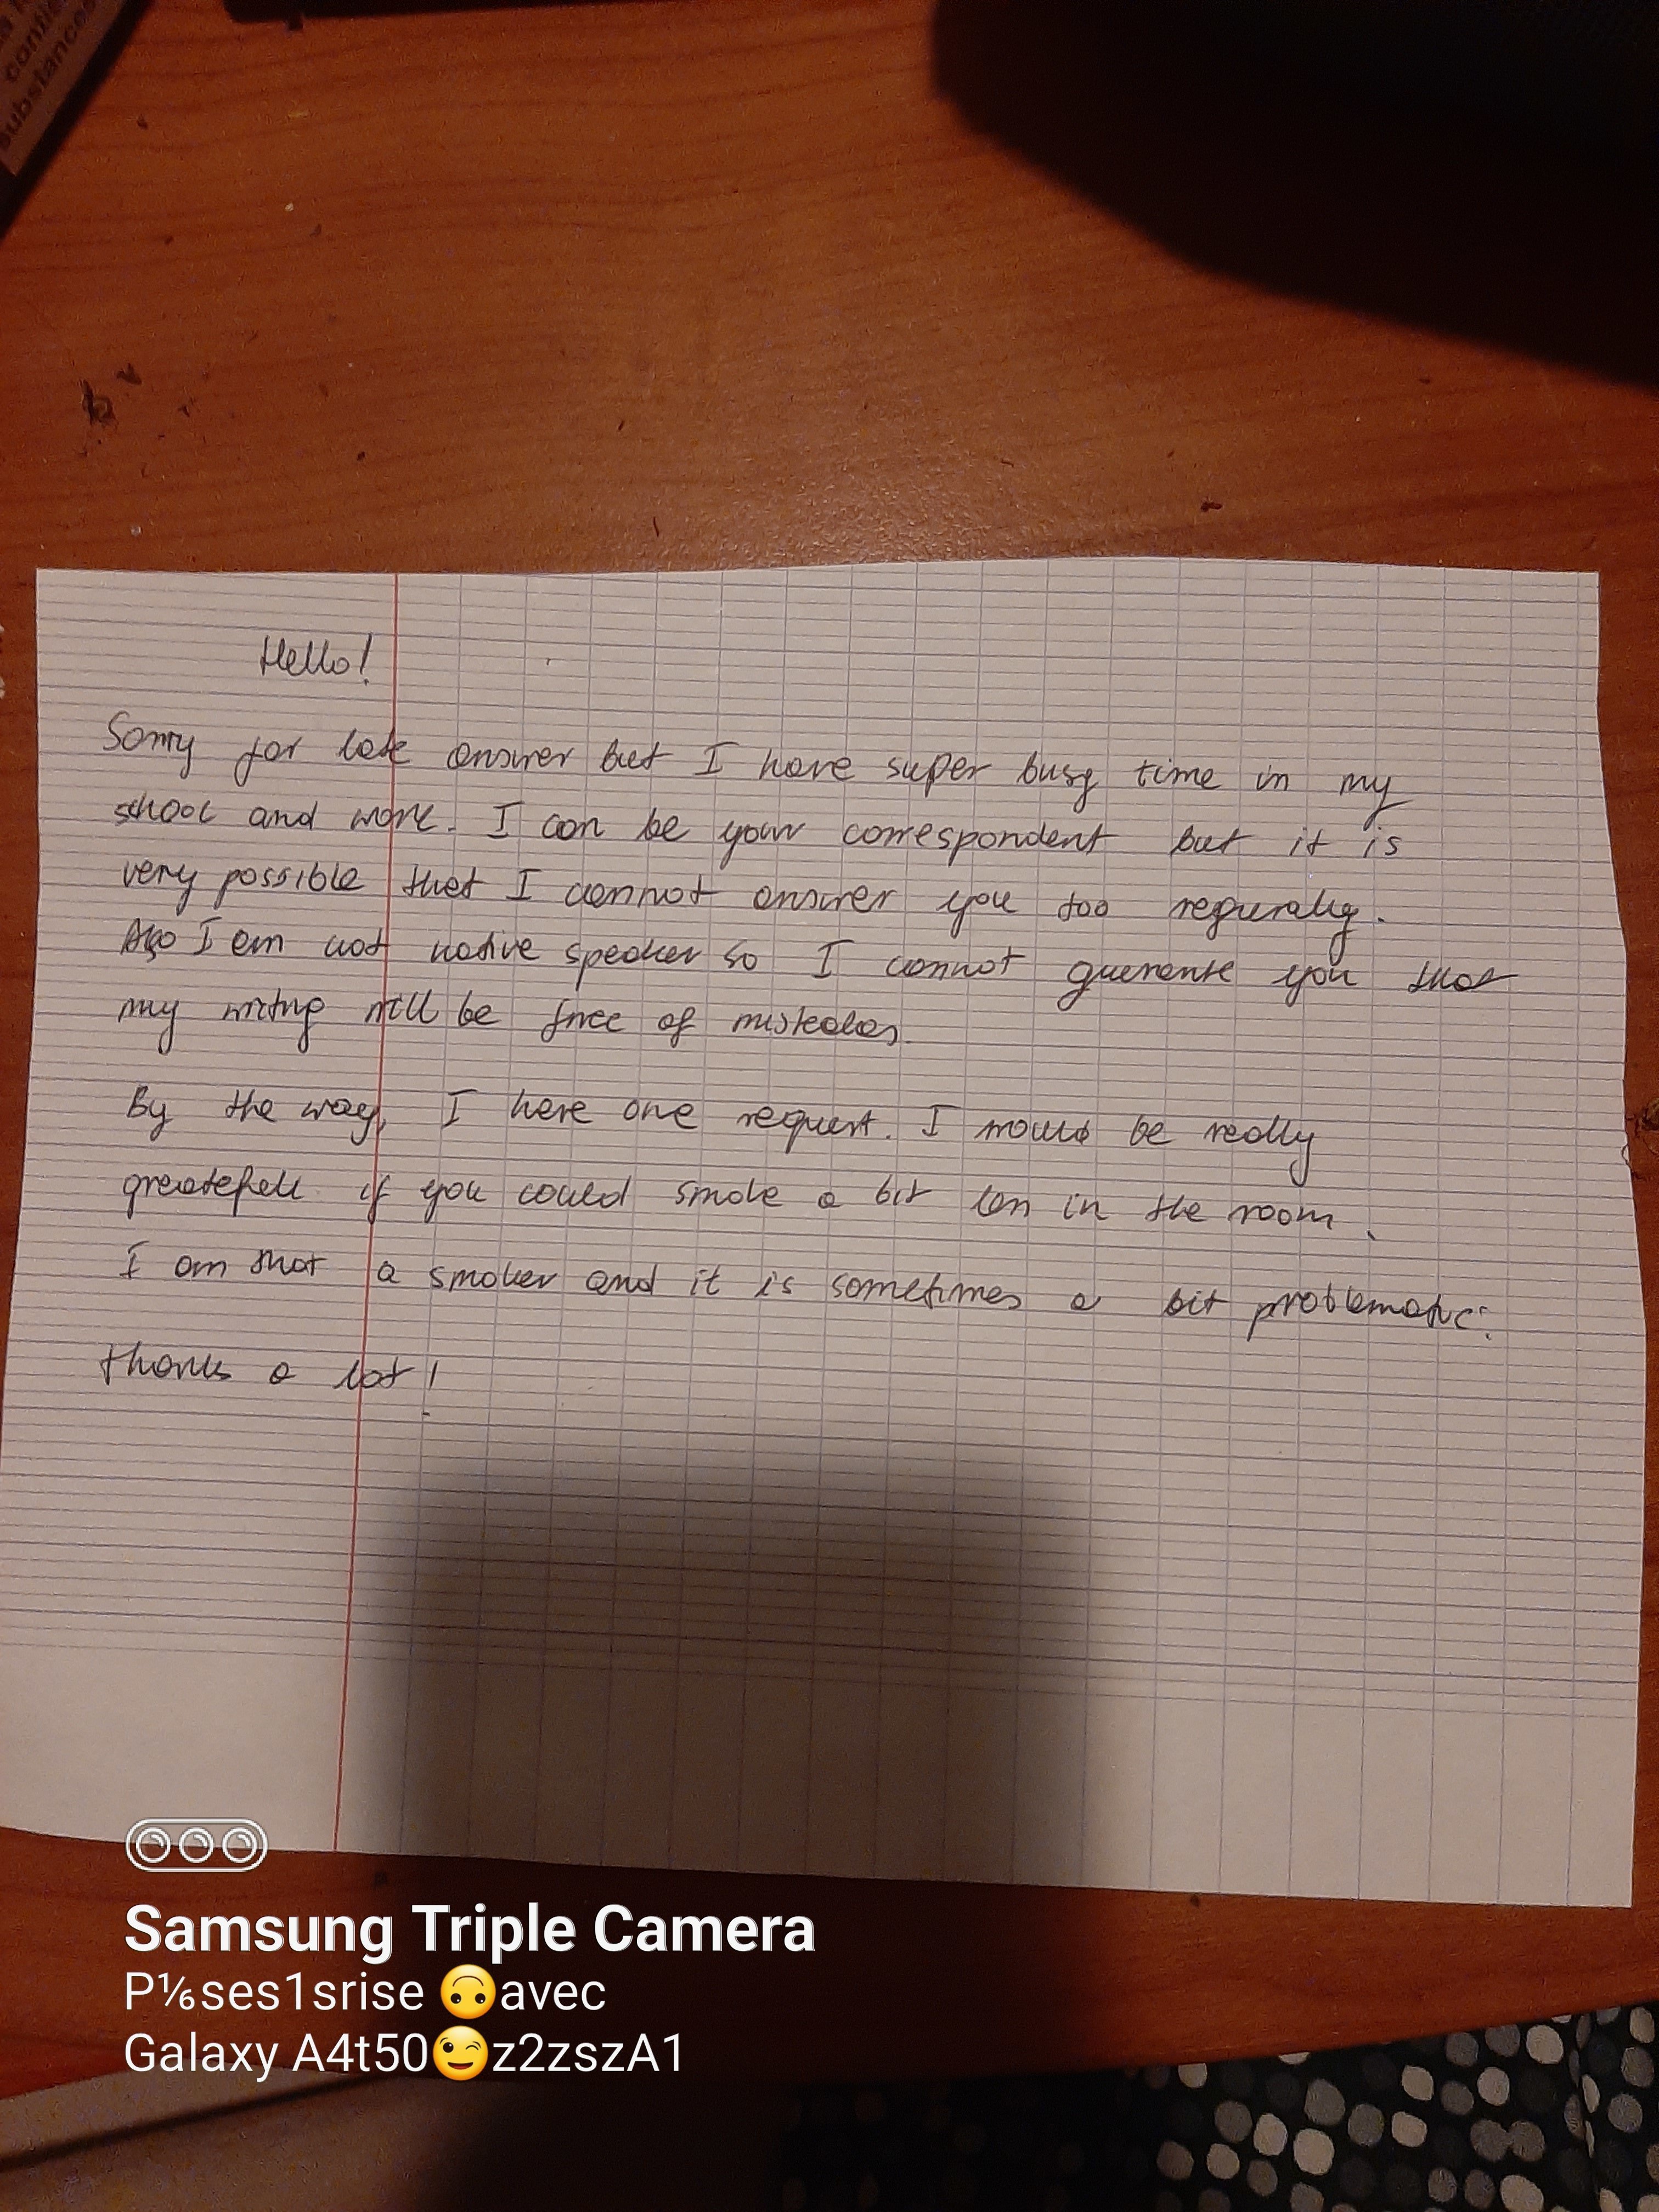 confie
substances
Hello!
Sorry for late answer but I have super busy time in my
school and work. I can be your correspondent but it is
very possible that I cannot answer you too reguraly.
Also I am not native speaker so I cannot guarante you that
my writing will be free of mistakes.
By the way, I have one request. I would be really
greatefull if you could smoke a bit less in the room.
I am not a smoker and it is sometimes a bit problematic.
Thanks a lot!
Samsung Triple Camera
P⅙ses1srise 🙃avec
Galaxy A4t50😉z2zszA1